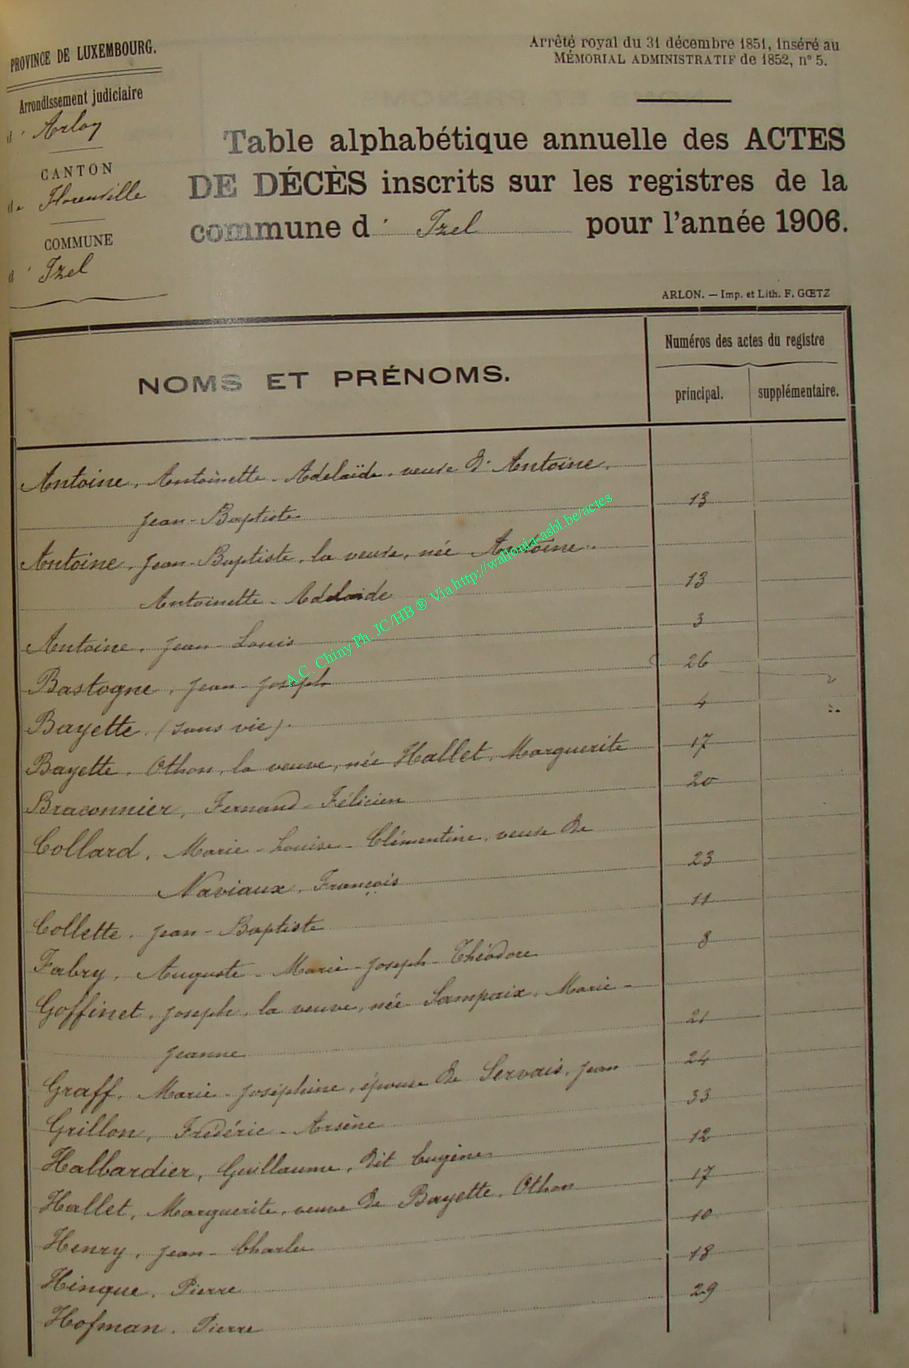 PROVINCE DE LUXEMBOURG.
Arrondissement judiciaire
d'Arlon
CANTON
de Florenville
COMMUNE
d'Izel
Arrêté royal du 31 décembre 1851, inséré au
MÉMORIAL ADMINISTRATIF de 1852, n° 5.
Table alphabétique annuelle des ACTES
DE DÉCÈS inscrits sur les registres de la
commune d'Izel pour l'année 1906.
ARLON. — Imp. et Lith. F. GŒTZ
NOMS ET PRÉNOMS.
Numéros des actes du registre
principal. supplémentaire.
Antoine, Antoinette-Adelaïde, veuve d'Antoine,
Jean-Baptiste 13
Antoine, Jean-Baptiste, la veuve, née Antoine
Antoinette-Adelaide 13
Antoine, Jean-Louis 3
Bastogne, Jean-Joseph 26
Bayette (sans vie). 4
Bayette, Othon, la veuve, née Hallet, Marguerite 17
Braconnier, Fernand-Félicien 20
Collard, Marie-Louise-Clémentine, veuve de
Naviaux, François 23
Collette, Jean-Baptiste 11
Fabry, Auguste-Marie-Joseph-Théodore 8
Goffinet, Joseph, la veuve, née Sampaix, Marie-
Jeanne 21
Graff, Marie-Joséphine, épouse de Servais, Jean 24
Grillon, Frédéric-Arsène 33
Halbardier, Guillaume, dit Eugène 12
Hallet, Marguerite, veuve de Bayette, Othon 17
Henry, Jean-Charles 10
Hinque, Pierre 18
Hofman, Pierre 29
A.C. Chiny Ph. JC/HB ® Via http://wallonia-asbl.be/actes